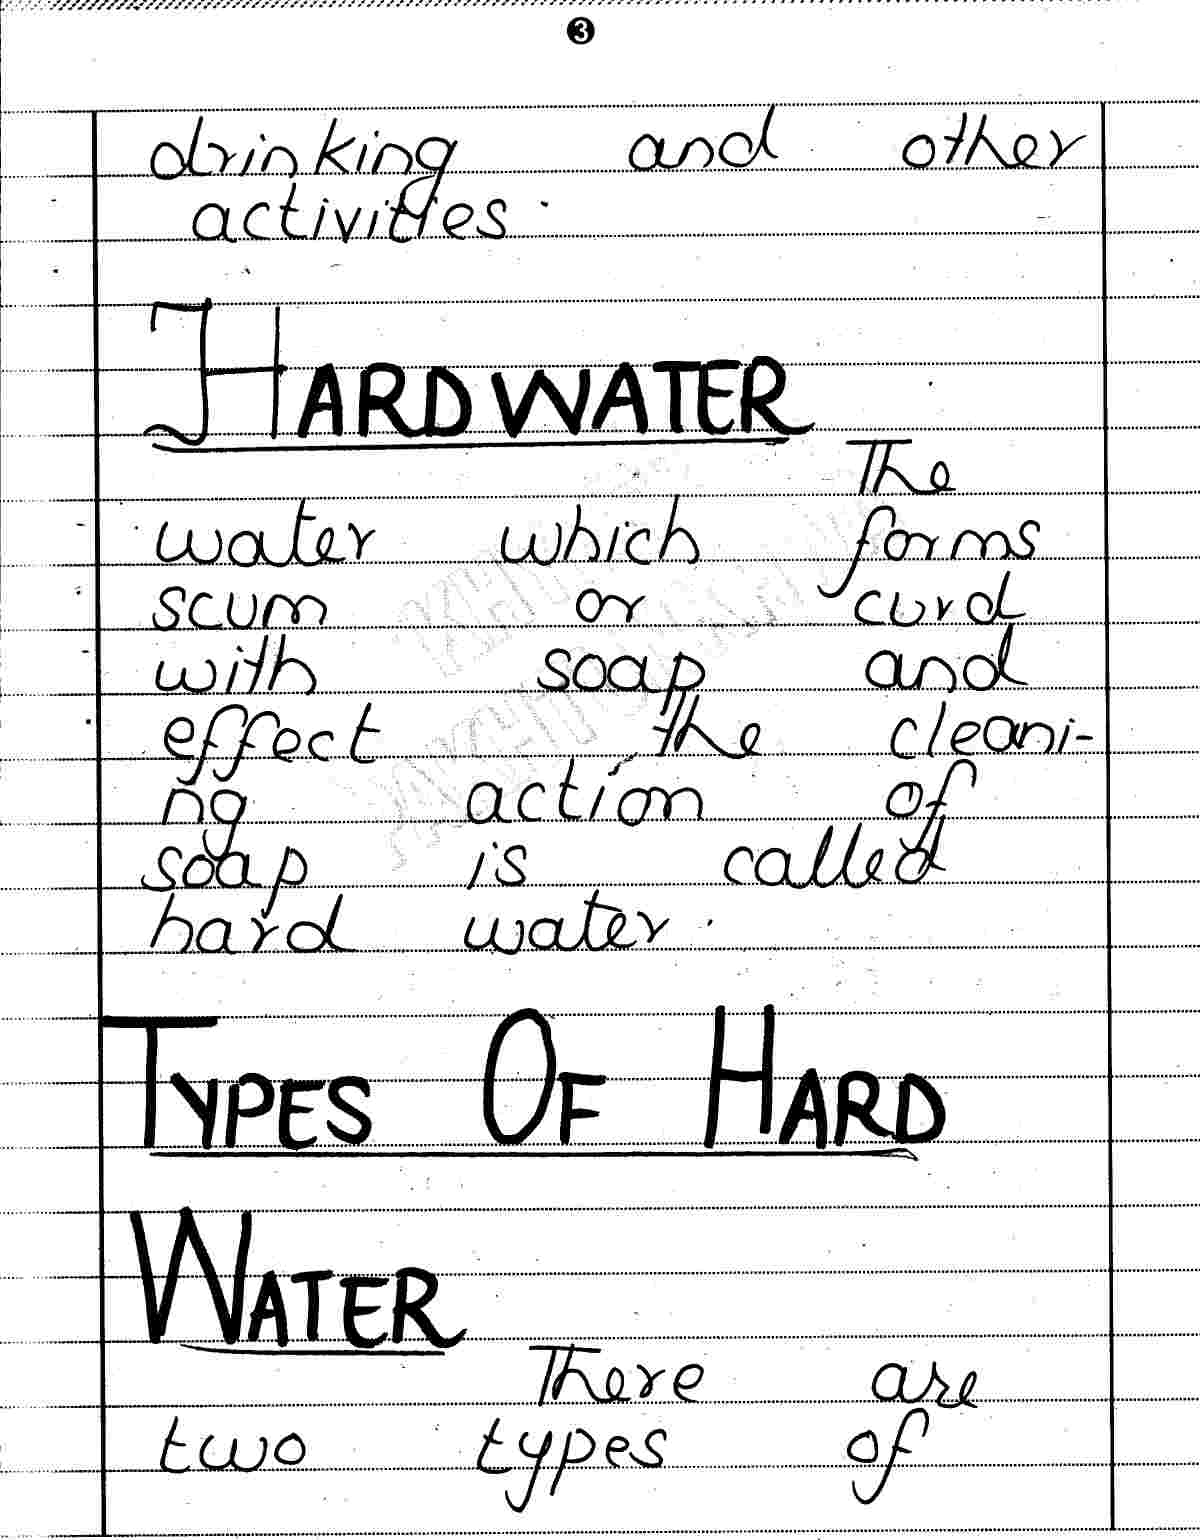 3
drinking and other
activities.
HARD WATER
The
water which forms
scum or curd
with soap and
effect the cleani-
ng action of
soap is called
hard water.
TYPES OF HARD
WATER
There are
two types of